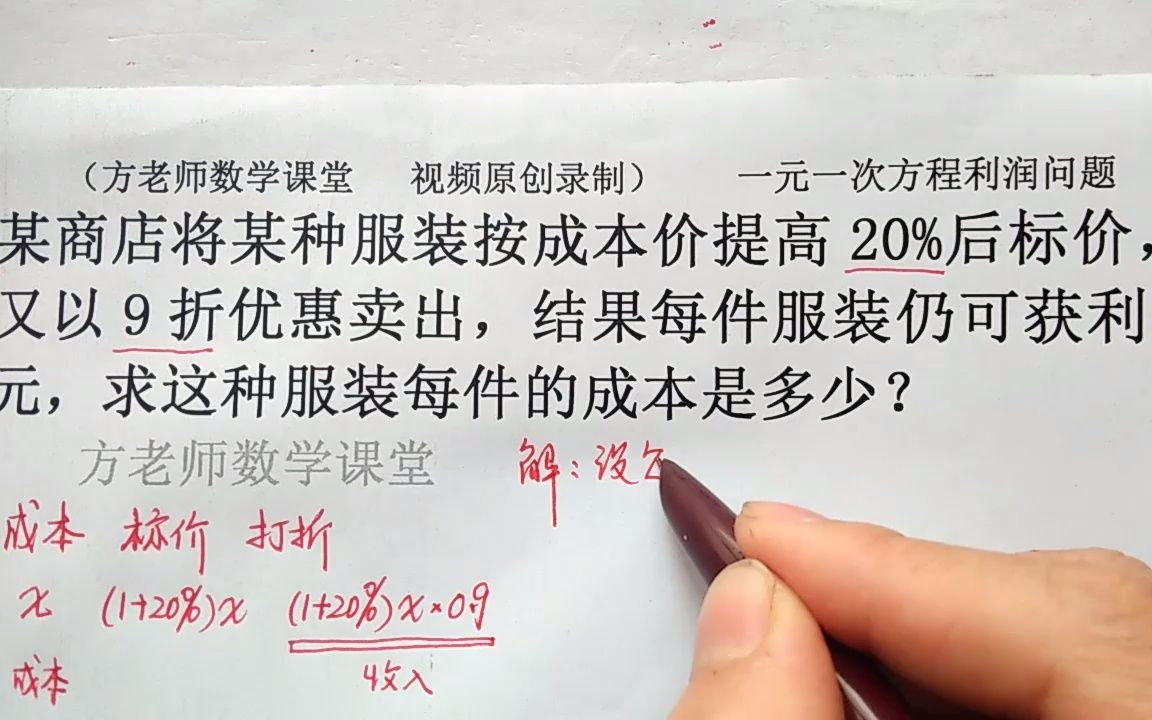 （方老师数学课堂 视频原创录制） 一元一次方程利润问题
某商店将某种服装按成本价提高 20%后标价，
又以 9 折优惠卖出，结果每件服装仍可获利
元，求这种服装每件的成本是多少？
方老师数学课堂
解：设
成本 标价 打折
x (1+20%)x (1+20%)x×0.9
成本 收入